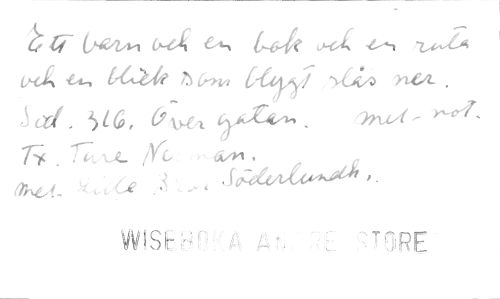 Ett barn och en bok och en ruta
och en blick som blygt slås ner.
Sid. 316. Över gatan. mel-not.
Tx. Ture Nerman.
mel. Lille Bror Söderlundh.
WISEBOKA ANDRE STORE